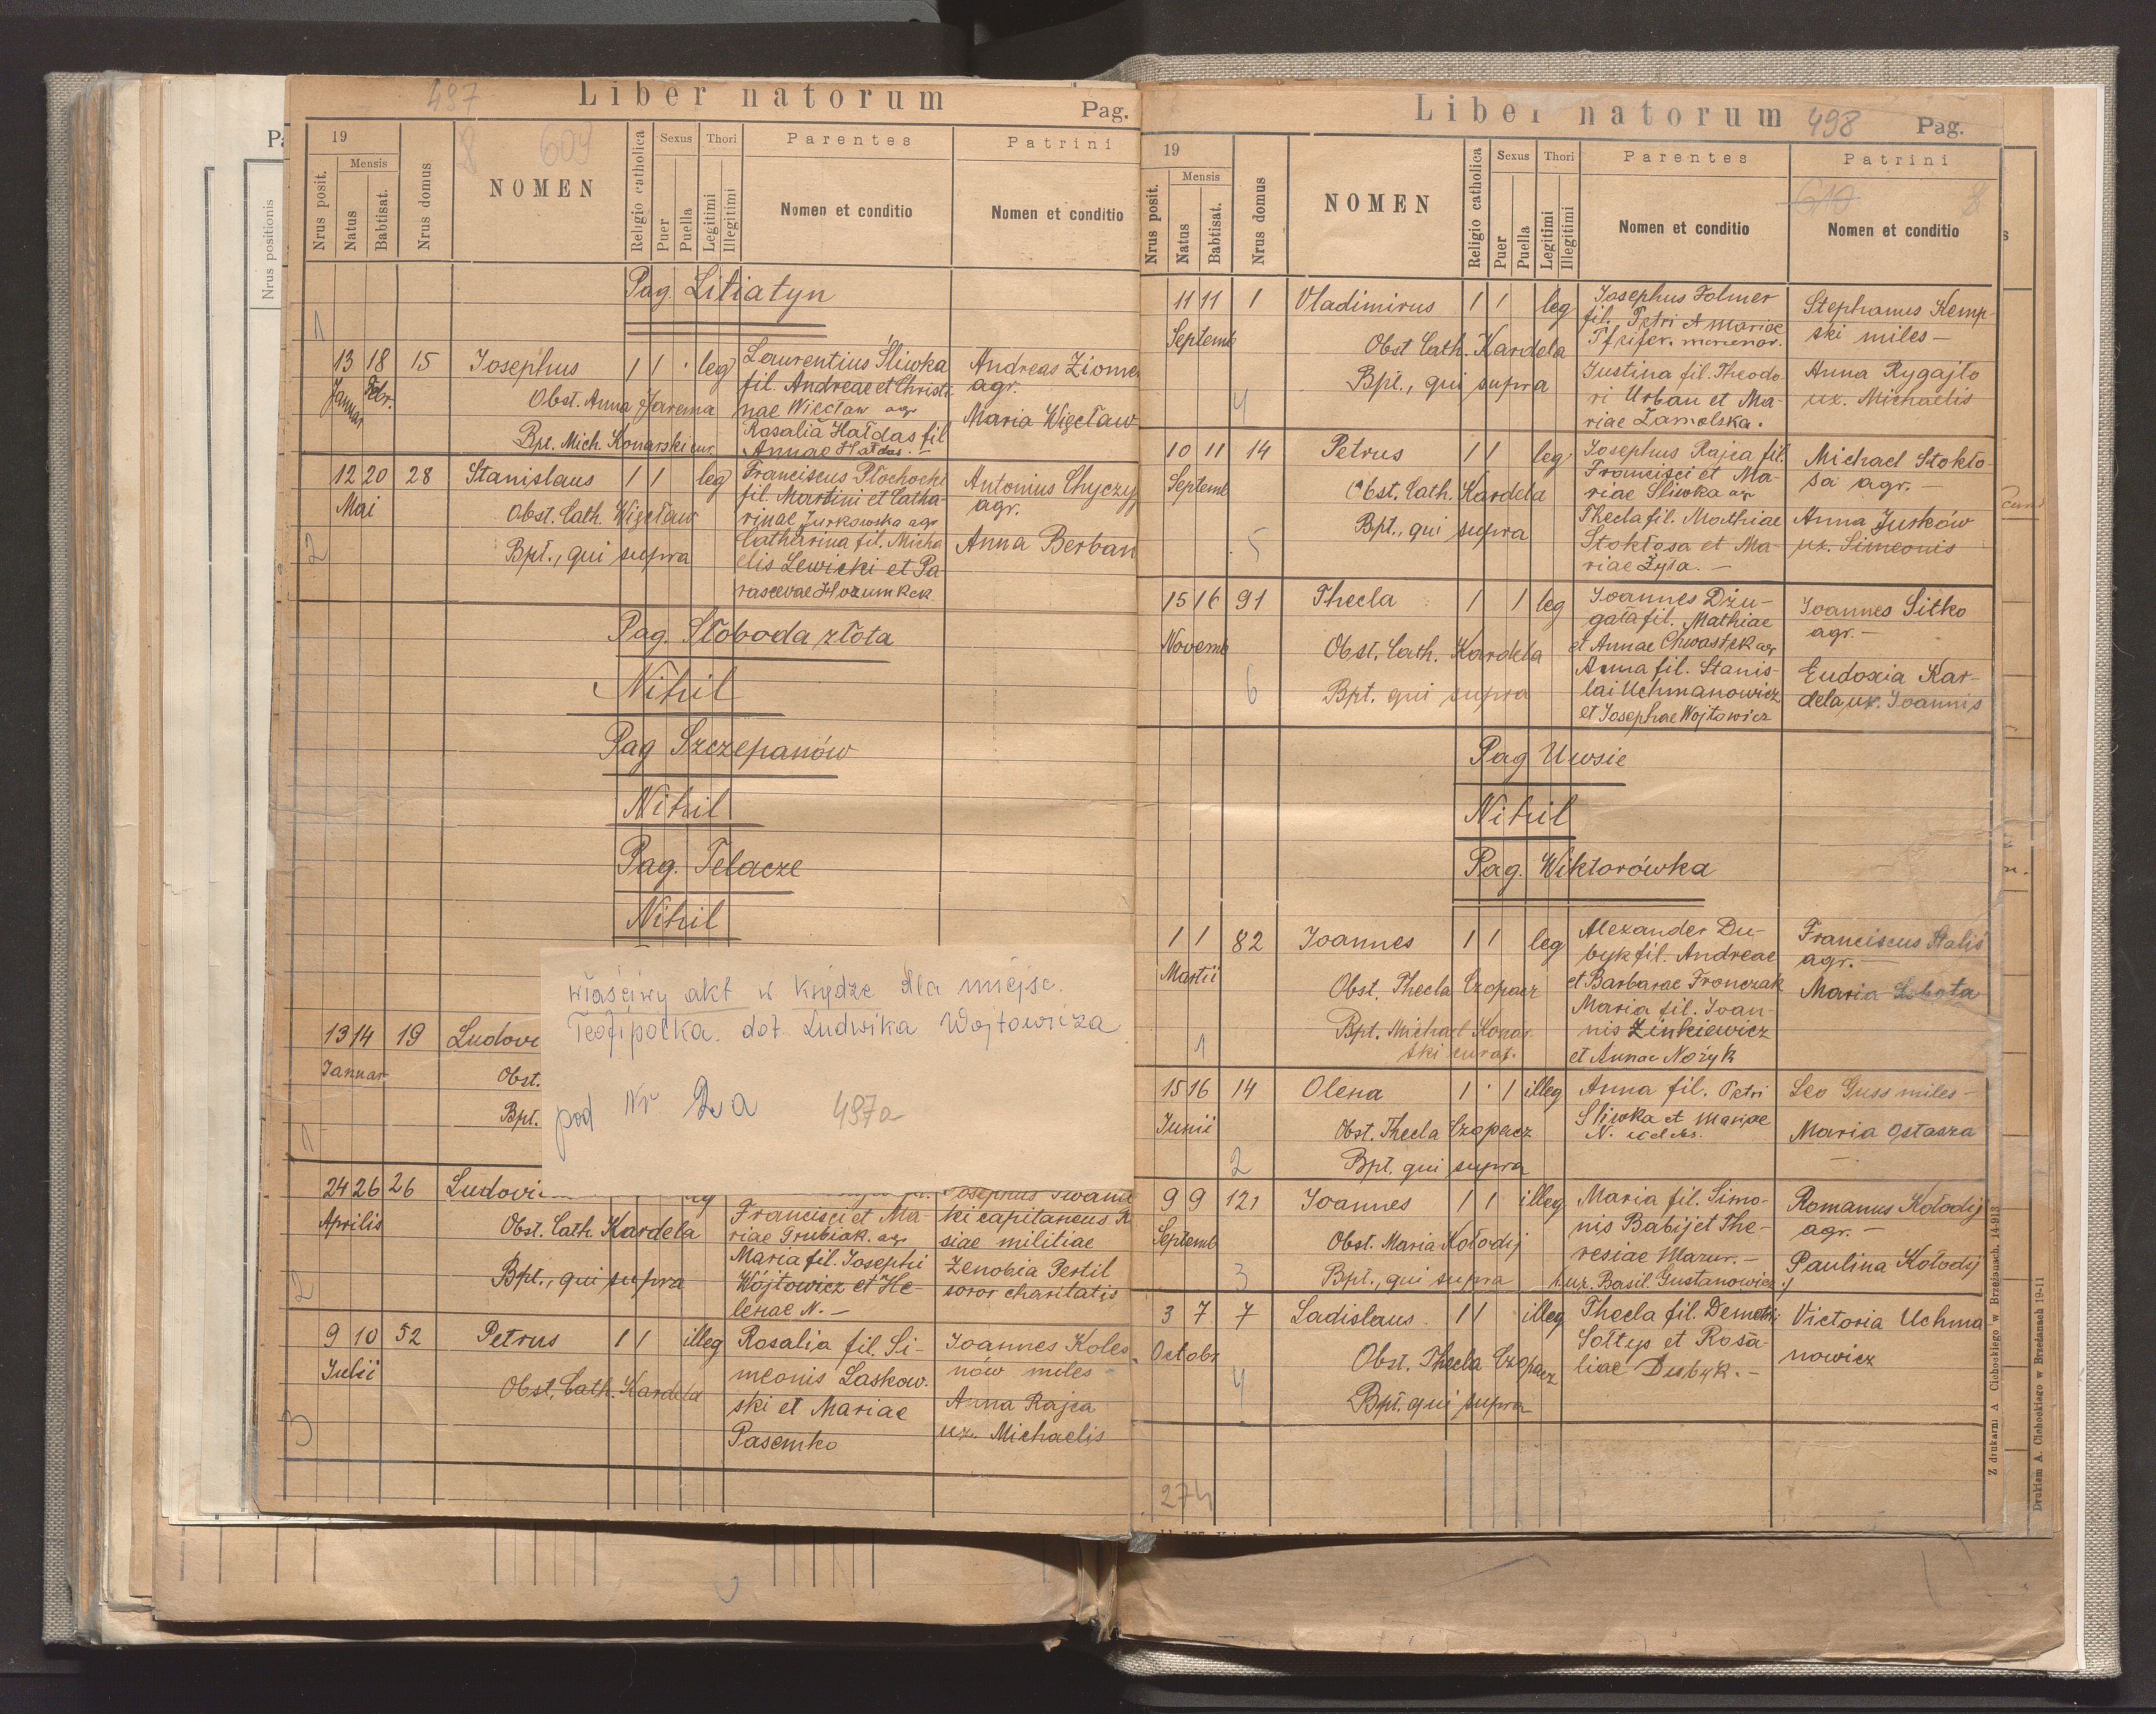 497
Liber natorum
Pag.
8 609
19
Nrus posit.
Mensis
Natus
Babtisat.
Nrus domus
NOMEN
Religio catholica
Sexus
Puer
Puella
Thori
Legitimi
Illegitimi
Parentes
Nomen et conditio
Patrini
Nomen et conditio
Nrus positionis
Pag. Litiatyn
1
13 18 15 Josephus 1 1 leg
Januar Febr.
Obst. Anna Jarema
Bpt. Mich. Konarski cur.
Laurentius Śliwka
fil. Andreae et Christi-
nae Więcław agr
Rosalia Hałdas fil
Annae Hałdas. –
Andreas Ziomek
agr.
Maria Więcław
2
12 20 28 Stanislaus 1 1 leg
Mai
Obst. Cath. Więcław
Bpt., qui supra
Franciscus Płochocki
fil. Martini et Catha-
rinae Jurkowska agr
Catharina fil. Micha
elis Lewicki et Pa
rascevae
Antonius
agr.
Anna Berban
Pag. Słoboda złota
Nihil
Pag Szczepanów
Nihil
Pag. Telacze
Nihil
właściwy akt w księdze dla miejsc.
Teofipólka. dot. Ludwika Wojtowicza
pod Nr. 2a 497a
1
13 14 19 Ludovi
Januar
Obst.
Bpt.
2
24 26 26 Ludovi
Aprilis
Obst. Cath. Kardela
Bpt., qui supra
Francisci et Ma-
riae Grubiak. agr
Maria fil. Josephi
Wójtowicz et He-
lenae N. –
Josephus
ki capitaneus
siae militiae
Zenobia Pertil
soror charitatis
3
9 10 52 Petrus 1 1 illeg
Julii
Obst. Cath. Kardela
Rosalia fil. Si-
meonis Laskow-
ski et Mariae
Pasemko
Joannes Koles
nów miles –
Anna Rajca
ux. Michaelis
Liber natorum 498 Pag.
19
Nrus posit.
Mensis
Natus
Babtisat.
Nrus domus
NOMEN
Religio catholica
Sexus
Puer
Puella
Thori
Legitimi
Illegitimi
Parentes
Nomen et conditio
Patrini
610 8
Nomen et conditio
11 11 1 Vladimirus 1 1 leg
Septemb
Obst Cath. Kardela
Bpt., qui supra
4
Josephus Folmer
fil. Petri et Mariae
Justina fil. Theodo-
ri Urban et Ma-
riae Zamolska.
Stephanus Kemp-
ski miles –
Anna Rygajło
ux. Michaelis
10 11 14 Petrus 1 1 leg
Septemb
Obst. Cath. Kardela
Bpt., qui supra
5
Josephus Rajca fil.
Francisci et Ma-
riae Śliwka agr
Thecla fil. Mathiae
Stokłosa et Ma-
riae Żyła. –
Michael Stokło-
sa agr. –
Anna Jurków
ux. Simeonis
15 16 91 Thecla 1 1 leg
Novemb
Obst. Cath. Kardela
6
Bpt. qui supra
Joannes Dżu-
gała fil. Mathiae
et Annae Chwastek agr
Anna fil. Stanis-
lai Uchmanowicz
et Josephae Wojtowicz
Joannes Sitko
agr. –
Eudoxia Kar-
dela ux. Joannis
Pag Uwsie
Nihil
Pag. Wiktorówka
1 1 82 Joannes 1 1 leg
Martii
Obst. Thecla Czopacz
Bpt. Michael Konar-
ski curat.
1
Alexander Du-
byk fil. Andreae
et Barbarae Fronczak
Maria fil. Joan-
nis Zinkiewicz
et Annae Nożyk
Franciscus Haliś
agr. –
Maria Sobota
15 16 14 Olena 1 1 illeg
Junii
Obst. Thecla Czopacz
2
Bpt. qui supra
Anna fil. Petri
Śliwka et Mariae
N.
Leo Guss miles –
Maria Ostasza
9 9 121 Joannes 1 1 illeg
Septemb
Obst. Maria Kołodij
3
Bpt., qui supra
Maria fil. Simo-
nis Babij et The-
resiae Mazur. –
(ux. Basil. Gustanowicz.)
Romanus Kołodij
agr. –
Paulina Kołodij
3 7 7 Ladislaus 1 1 illeg
Octobr
Obst. Thecla Czopacz
4
Bpt. qui supra
Thecla fil. Demetri
Sołtys et Rosa-
liae Dubyk. –
Victoria Uchma
nowicz
274
Z drukarni A Cichockiego w Brzeżanach. 14-913
Drukiem A. Cichockiego w Brzeżanach 19-11